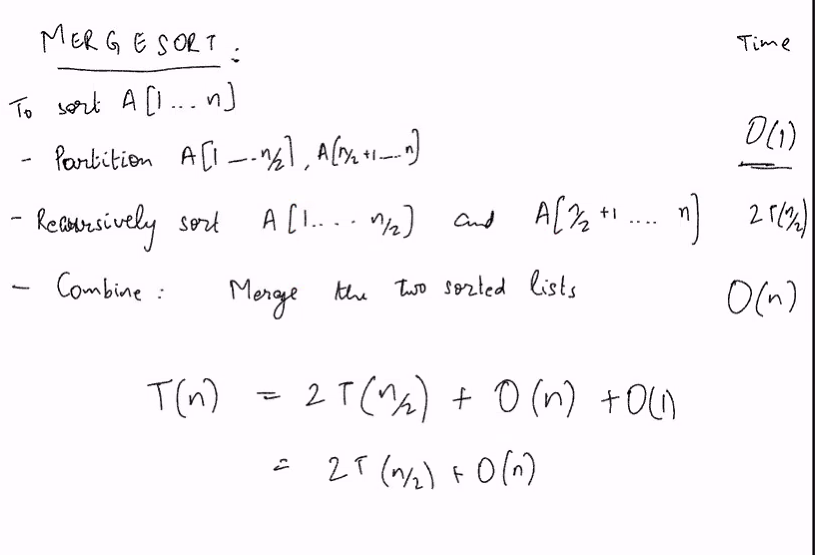 MERGESORT :
Time
To sort A[1 ... n]
- Partition A[1 --- n/2], A[n/2 +1 --- n] O(1)
- Recursively sort A[1.... n/2] and A[n/2 +1 .... n] 2T(n/2)
- Combine : Merge the two sorted lists O(n)
T(n) = 2T(n/2) + O(n) + O(1)
= 2T(n/2) + O(n)